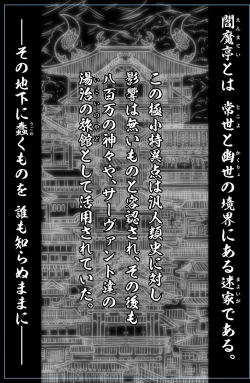 閻魔亭とは 常世と幽世の境界にある迷家である。
この極小特異点は汎人類史に対し
影響は無いものと容認され、その後も
八百万の神々や、サーヴァント達の
湯治の旅館として活用されていた。
──その地下に蠢くものを 誰も知らぬままに──